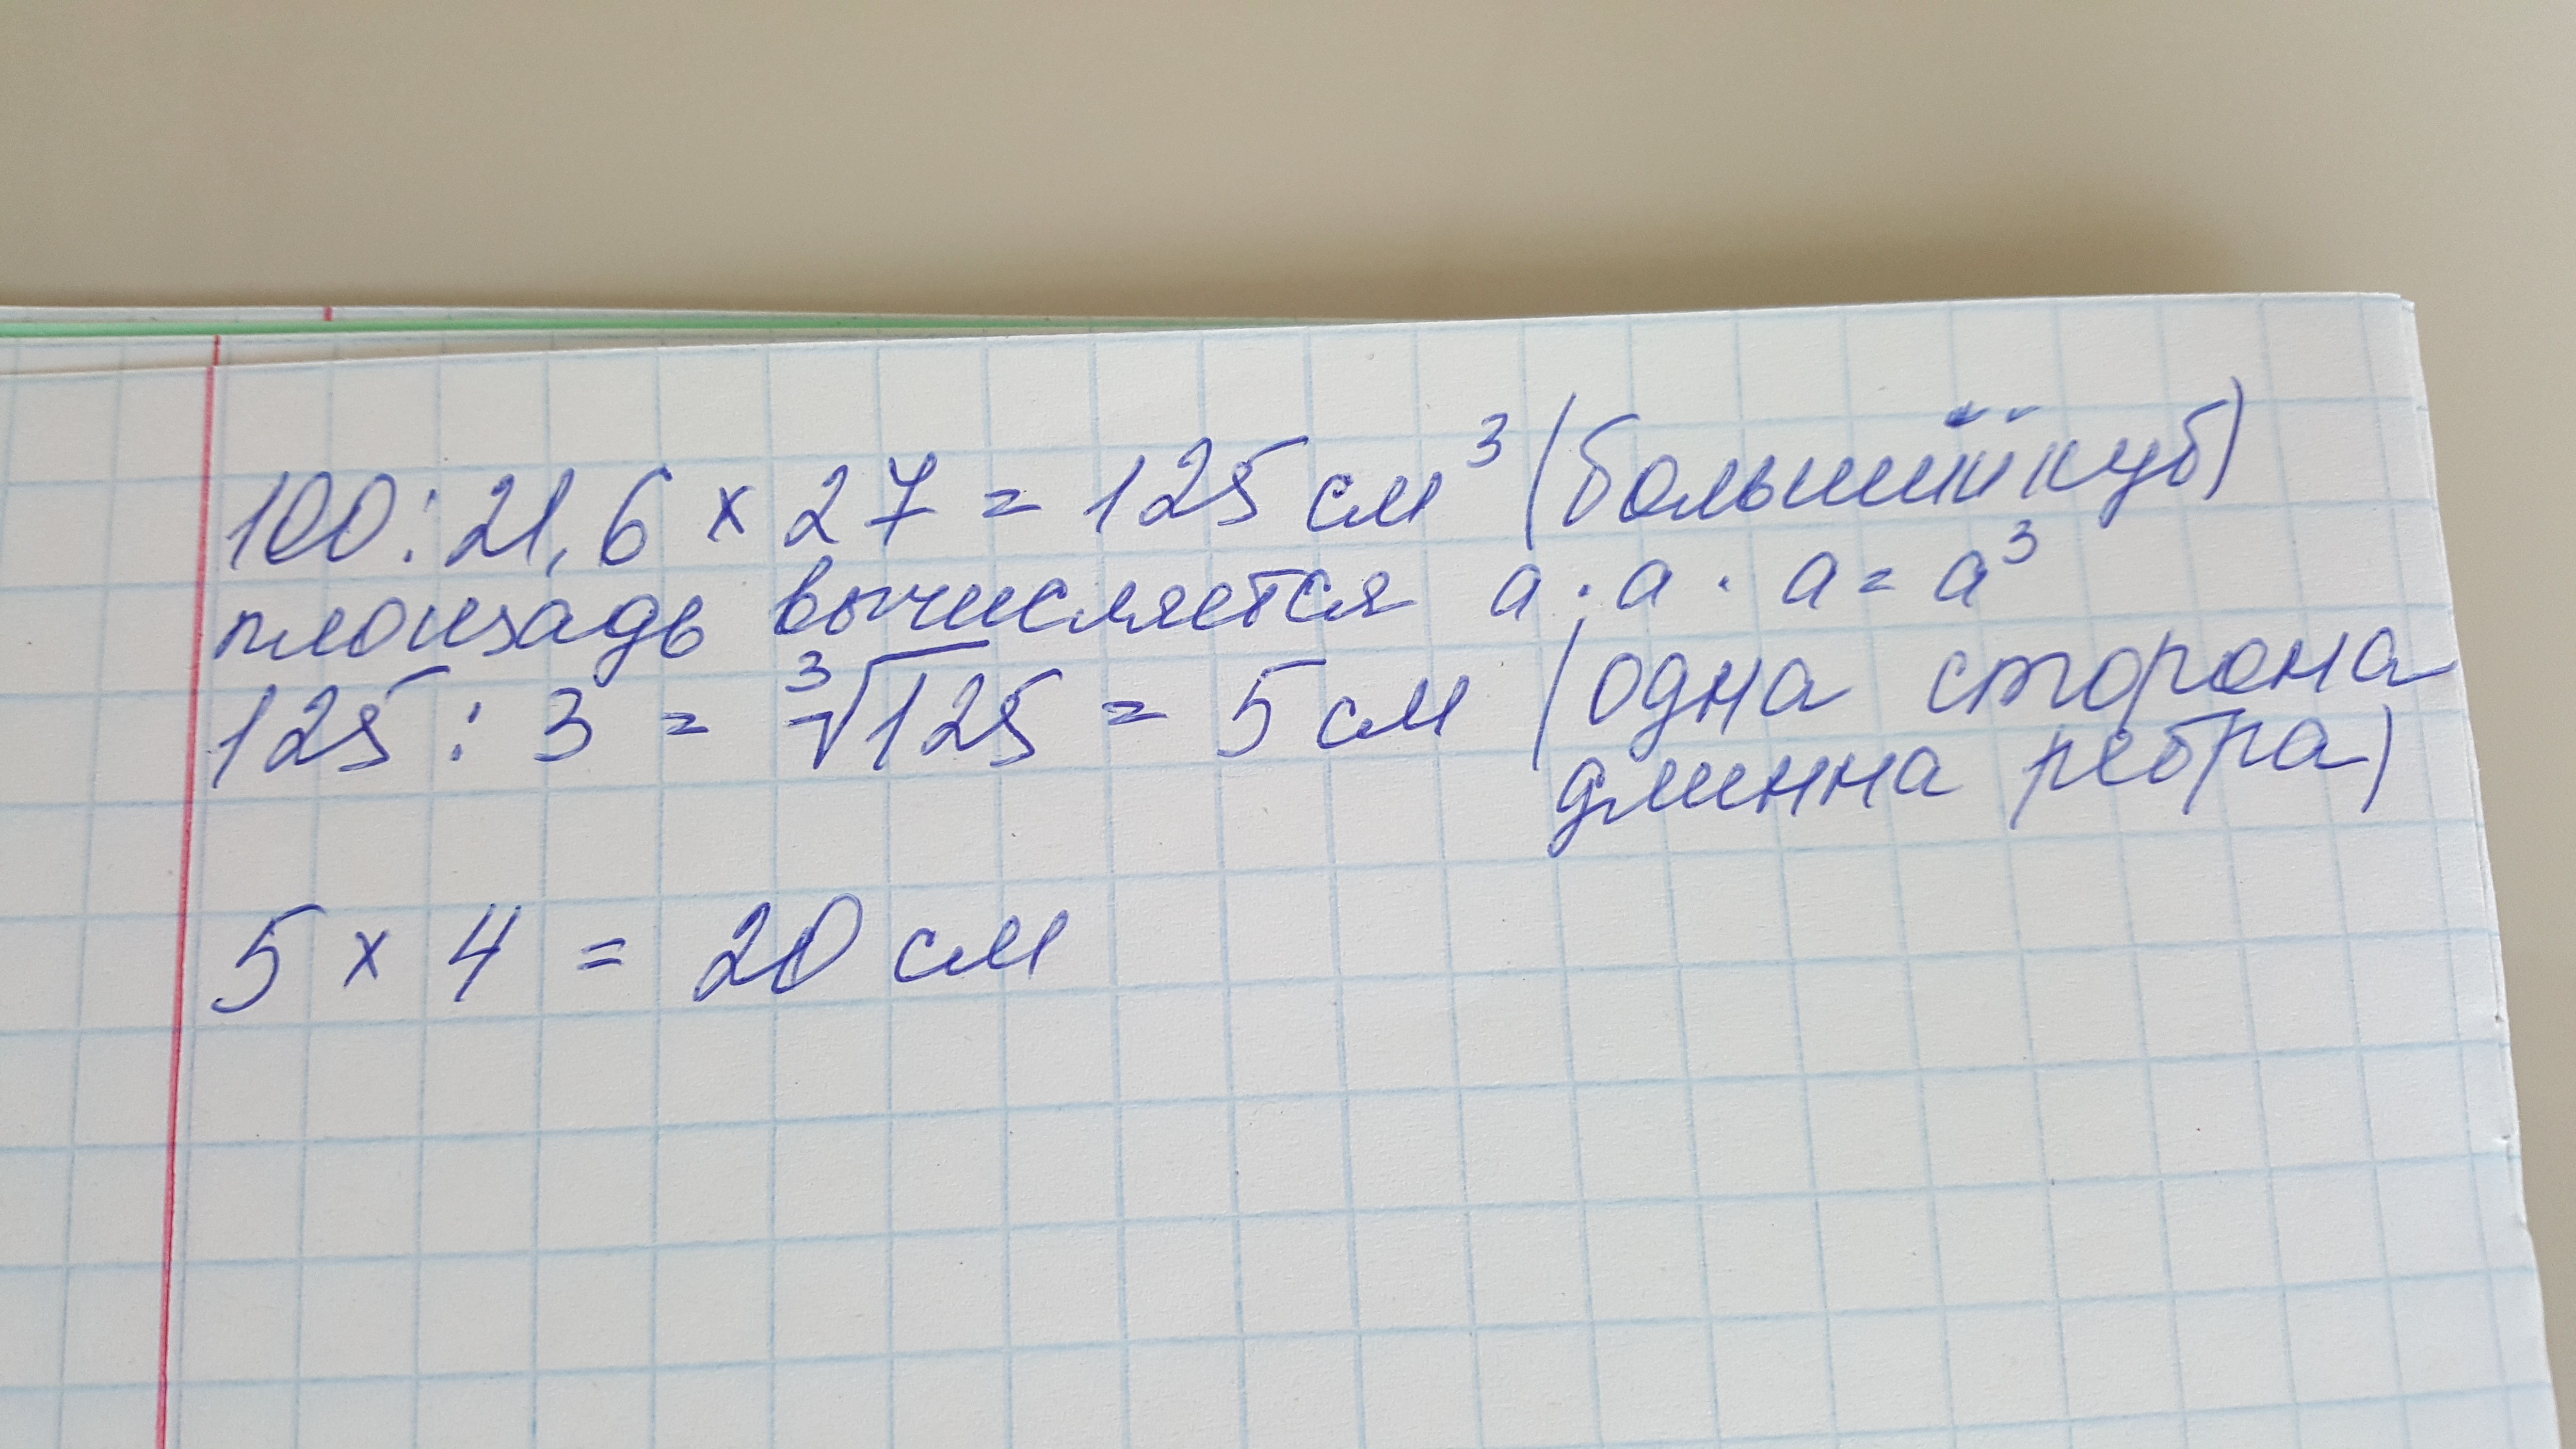 100 : 21,6 × 27 = 125 см³ (больший куб)
площадь вычисляется a · a · a = a³
125 : 3 = ³√125 = 5 см (одна сторона
длинна ребра)
5 × 4 = 20 см